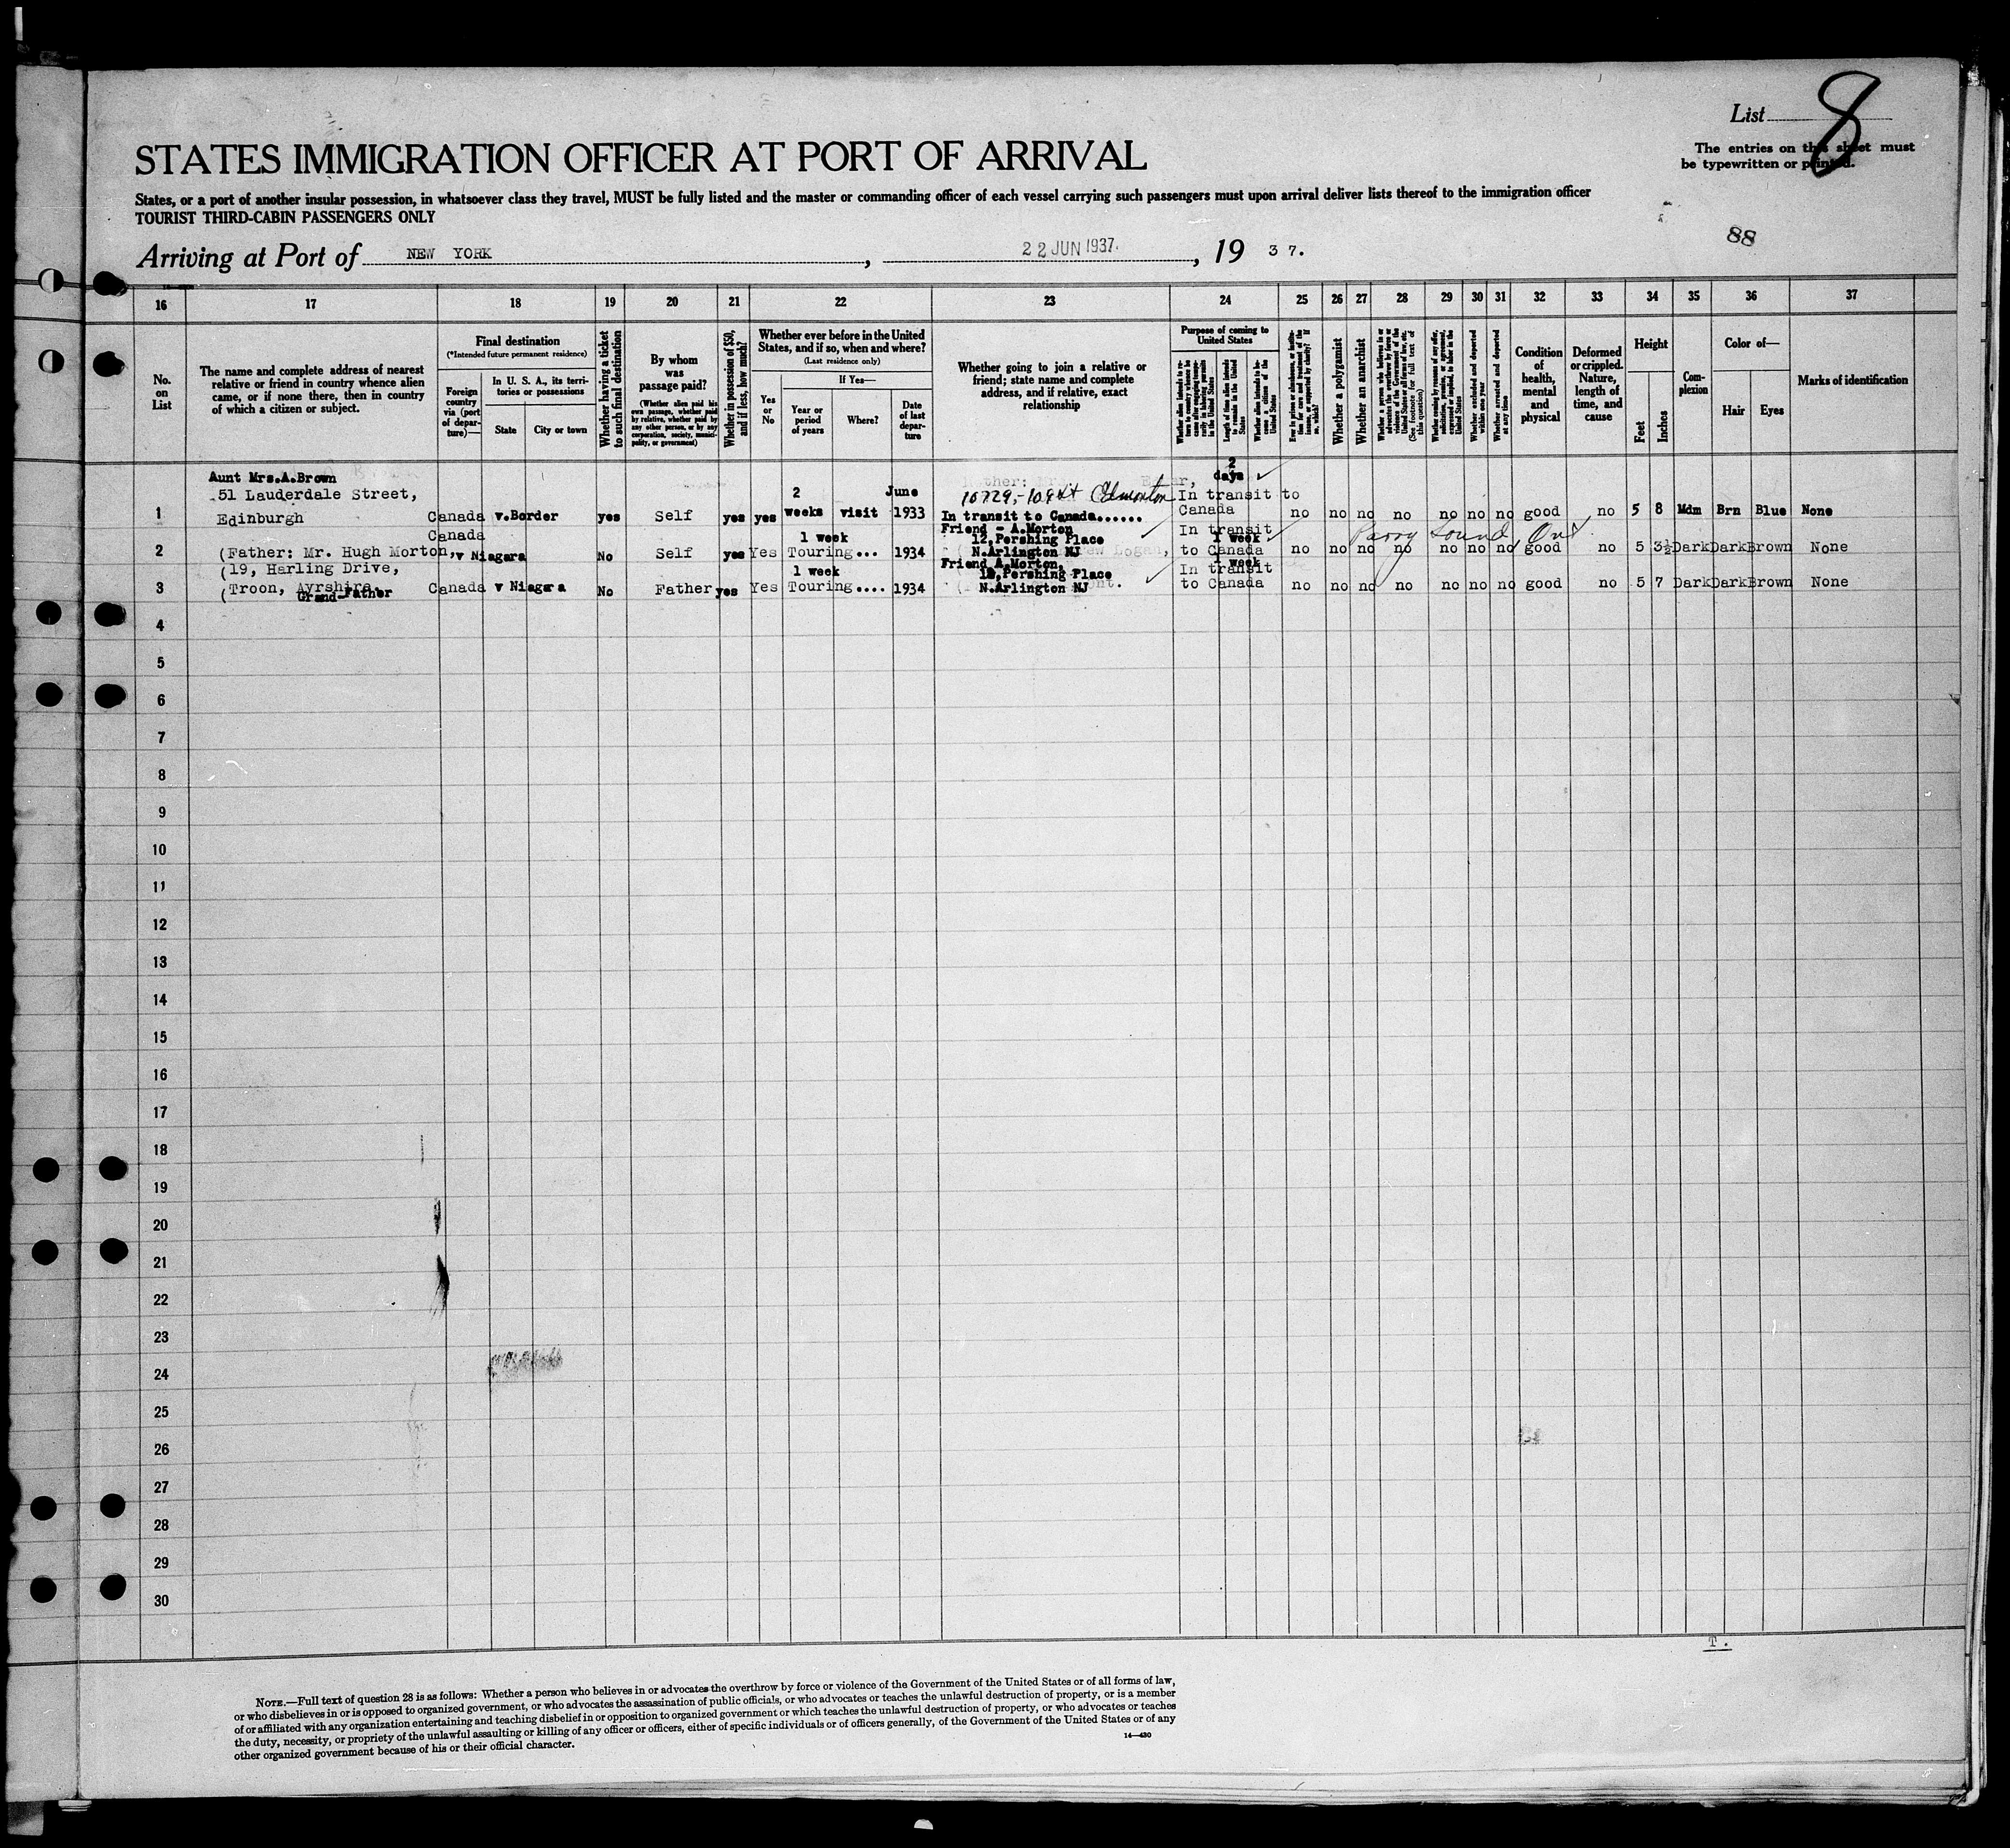 List 8
The entries on this sheet must
be typewritten or printed.
STATES IMMIGRATION OFFICER AT PORT OF ARRIVAL
States, or a port of another insular possession, in whatsoever class they travel, MUST be fully listed and the master or commanding officer of each vessel carrying such passengers must upon arrival deliver lists thereof to the immigration officer
TOURIST THIRD-CABIN PASSENGERS ONLY
88
Arriving at Port of NEW YORK, 22 JUN 1937., 19 37.
16 17 18 19 20 21 22 23 24 25 26 27 28 29 30 31 32 33 34 35 36 37
No.
on
List
The name and complete address of nearest
relative or friend in country whence alien
came, or if none there, then in country
of which a citizen or subject.
Final destination
(*Intended future permanent residence)
Foreign
country
via (port
of depar-
ture)—
In U. S. A., its terri-
tories or possessions
State
City or town
Whether having a ticket
to such final destination
By whom
was
passage paid?
(Whether alien paid his
own passage, whether paid
by relative, whether paid by
any other person, or by any
corporation, society, munici-
pality, or government)
Whether in possession of $50,
and if less, how much?
Whether ever before in the United
States, and if so, when and where?
(Last residence only)
Yes
or
No
If Yes—
Year or
period
of years
Where?
Date
of last
depar-
ture
Whether going to join a relative or
friend; state name and complete
address, and if relative, exact
relationship
Purpose of coming to
United States
Length of time alien intends
to remain in the United
States
Whether alien intends to be-
come a citizen of the
United States
Whether a polygamist
Whether an anarchist
(See footnote for full text of
this question)
Whether excluded and deported
within one year
Whether arrested and deported
at any time
Condition
of
health,
mental
and
physical
Deformed
or crippled.
Nature,
length of
time, and
cause
Height
Feet
Inches
Com-
plexion
Color of—
Hair
Eyes
Marks of identification
Aunt Mrs.A.Brown 2
51 Lauderdale Street, 2 June 10729,-108 st Edmonton days In transit to
1 Edinburgh Canada v.Border yes Self yes yes weeks visit 1933 In transit to Canada...... Canada no no no no no no no good no 5 8 Mdm Brn Blue None
Canada 1 week Friend - A.Morton In transit Parry Sound Ont.
12,Pershing Place 1 week
2 (Father: Mr. Hugh Morton, v Niagara No Self yes Yes Touring... 1934 N.Arlington NJ to Canada no no no no no no no good no 5 3½ Dark Dark Brown None
(19, Harling Drive, 1 week Friend A.Morton, 1 week
12,Pershing Place In transit
3 (Troon, Ayrshire Canada v Niagara No Father yes Yes Touring.... 1934 N.Arlington NJ to Canada no no no no no no no good no 5 7 Dark Dark Brown None
Grand-Father
4
5
6
7
8
9
10
11
12
13
14
15
16
17
18
19
20
21
22
23
24
25
26
27
28
29
30
T.
NOTE.—Full text of question 28 is as follows: Whether a person who believes in or advocates the overthrow by force or violence of the Government of the United States or of all forms of law,
or who disbelieves in or is opposed to organized government, or who advocates the assassination of public officials, or who advocates or teaches the unlawful destruction of property, or is a member
of or affiliated with any organization entertaining and teaching disbelief in or opposition to organized government or which teaches the unlawful destruction of property, or who advocates or teaches
the duty, necessity, or propriety of the unlawful assaulting or killing of any officer or officers, either of specific individuals or of officers generally, of the Government of the United States or of any
other organized government because of his or their official character.
14—430